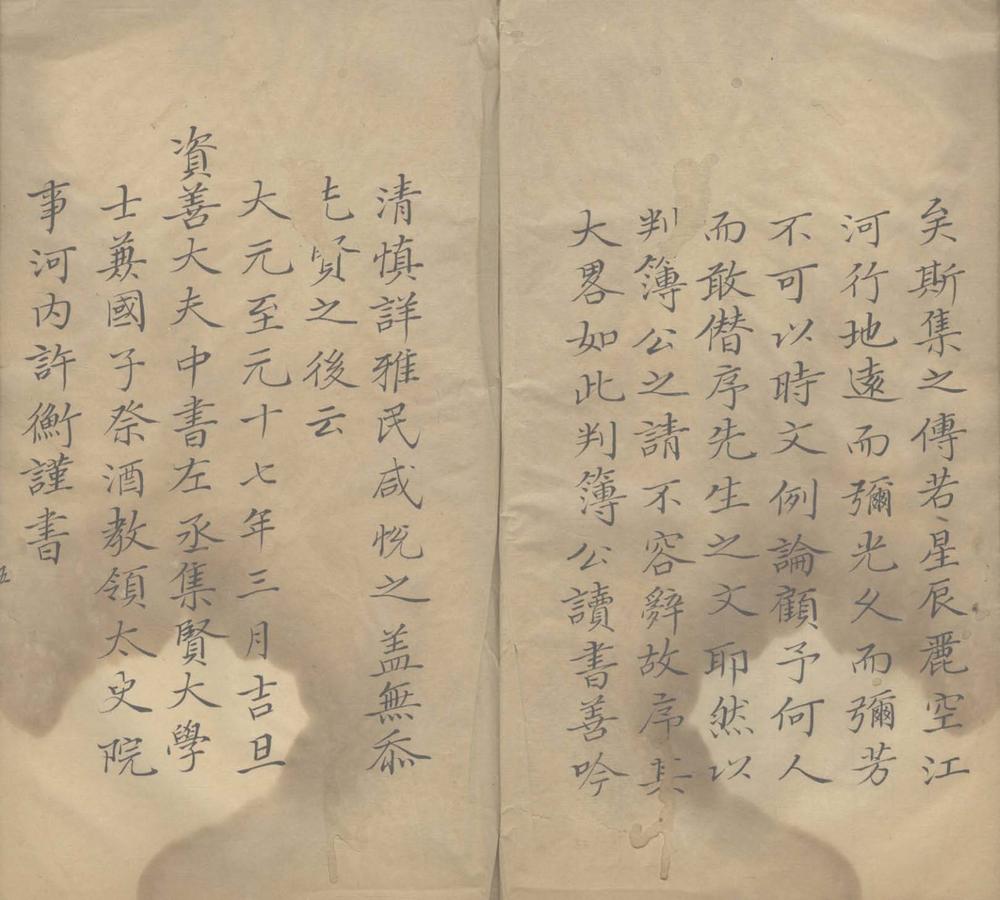 矣斯集之傳若星辰麗空江
河行地遠而彌光久而彌芳
不可以時文例論顧予何人
而敢僭序先生之文耶然以
判簿公之請不容辭故序其
大畧如此判簿公讀書善吟
清慎詳雅民咸悅之盖無忝
先賢之後云
大元至元十七年三月吉旦
資善大夫中書左丞集賢大學
士兼國子祭酒教領太史院
事河内許衡謹書
五